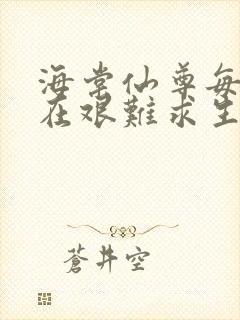 海棠仙尊每
在艱難求生
蒼井空